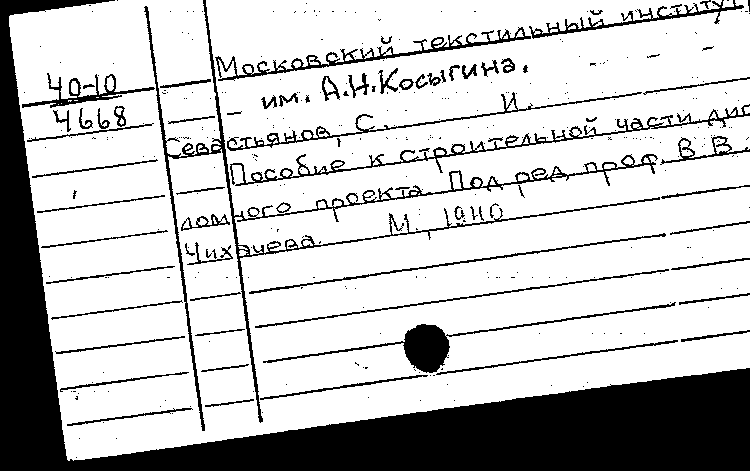 40-10
4668
Московский текстильный институт
им. А.Н.Косыгина.
Севастьянов, С. И.
Пособие к строительной части дип
ломного проекта. Под ред. проф. В. В.
Чихачева. М., 1940